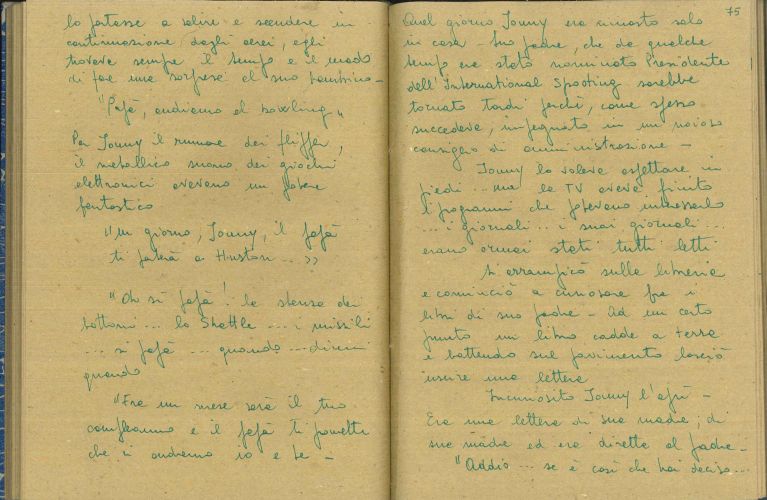 lo portasse a salire e scendere in
continuazione dagli aerei, egli
trovava sempre il tempo e il modo
di fare una sorpresa al suo bambino -
"Papà, andiamo al bowling"
Per Jonny il rumore dei flipper,
il metallico suono dei giochi
elettronici avevano un potere
fantastico
"Un giorno, Jonny, il papà
ti porterà a Huston... >>
"Oh sì papà! la stanza dei
bottoni... lo Shattle... i missili
... sì papà ... quando ... dimmi
quando
"Fra un mese sarà il tuo
compleanno e il papà ti promette
che ci andremo io e te -
75
Quel giorno Jonny era rimasto solo
in casa - Suo padre, che da qualche
tempo era stato nominato Presidente
dell'International Spooting sarebbe
tornato tardi perché, come spesso
succedeva, impegnato in un noioso
consiglio di amministrazione -
Jonny lo voleva aspettare in
piedi... ma la TV aveva finito
i programmi che potevano interessarlo
... i giornali... i suoi giornali...
erano ormai stati tutti letti
Si arrampicò sulla libreria
e cominciò a curiosare fra i
libri di suo padre - Ad un certo
punto un libro cadde a terra
e battendo sul pavimento lasciò
uscire una lettera
Incuriosito Jonny l'aprì -
Era una lettera di sua madre, di
sua madre ed era diretta al padre -
"Addio... se è così che hai deciso...